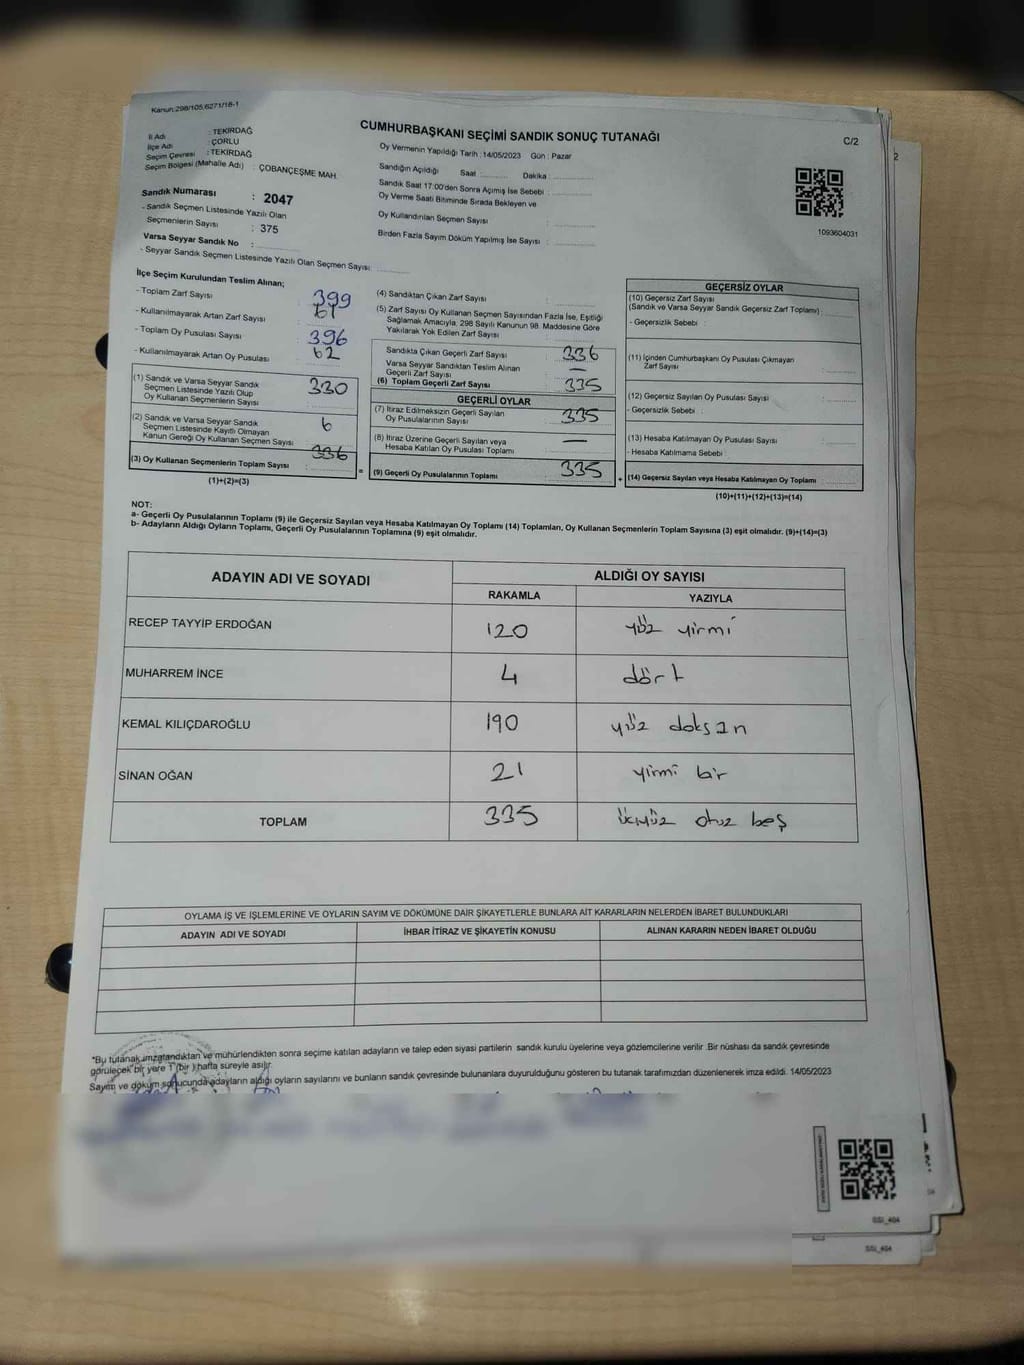 Kanun:298/105,6271/18-1
CUMHURBAŞKANI SEÇİMİ SANDIK SONUÇ TUTANAĞI
C/2
2
İl Adı : TEKİRDAĞ
İlçe Adı : ÇORLU
Seçim Çevresi : TEKİRDAĞ
Seçim Bölgesi (Mahalle Adı) : ÇOBANÇEŞME MAH.
Sandık Numarası : 2047
- Sandık Seçmen Listesinde Yazılı Olan
Seçmenlerin Sayısı : 375
Varsa Seyyar Sandık No :
- Seyyar Sandık Seçmen Listesinde Yazılı Olan Seçmen Sayısı:
Oy Vermenin Yapıldığı Tarih :14/05/2023 Gün : Pazar
Sandığın Açıldığı Saat Dakika :
Sandık Saat 17:00'den Sonra Açımış İse Sebebi :
Oy Verme Saati Bitiminde Sırada Bekleyen ve
Oy Kullandırılan Seçmen Sayısı :
Birden Fazla Sayım Döküm Yapılmış İse Sayısı :
1093604031
İlçe Seçim Kurulundan Teslim Alınan;
- Toplam Zarf Sayısı : 399
- Kullanılmayarak Artan Zarf Sayısı : 61
- Toplam Oy Pusulası Sayısı : 396
- Kullanılmayarak Artan Oy Pusulası : 62
(1) Sandık ve Varsa Seyyar Sandık
Seçmen Listesinde Yazılı Olup
Oy Kullanan Seçmenlerin Sayısı : 330
(2) Sandık ve Varsa Seyyar Sandık
Seçmen Listesinde Kayıtlı Olmayan
Kanun Gereği Oy Kullanan Seçmen Sayısı : 6
(3) Oy Kullanan Seçmenlerin Toplam Sayısı : 336
(1)+(2)=(3)
(4) Sandıktan Çıkan Zarf Sayısı :
(5) Zarf Sayısı Oy Kullanan Seçmen Sayısından Fazla İse, Eşitliği
Sağlamak Amacıyla, 298 Sayılı Kanunun 98. Maddesine Göre
Yakılarak Yok Edilen Zarf Sayısı :
Sandıkta Çıkan Geçerli Zarf Sayısı : 336
Varsa Seyyar Sandıktan Teslim Alınan
Geçerli Zarf Sayısı : —
(6) Toplam Geçerli Zarf Sayısı : 335
GEÇERLİ OYLAR
(7) İtiraz Edilmeksizin Geçerli Sayılan
Oy Pusulalarının Sayısı : 335
(8) İtiraz Üzerine Geçerli Sayılan veya
Hesaba Katılan Oy Pusulası Toplamı : —
= (9) Geçerli Oy Pusulalarının Toplamı : 335
GEÇERSİZ OYLAR
(10) Geçersiz Zarf Sayısı
(Sandık ve Varsa Seyyar Sandık Geçersiz Zarf Toplamı) :
- Geçersizlik Sebebi :
(11) İçinden Cumhurbaşkanı Oy Pusulası Çıkmayan
Zarf Sayısı :
(12) Geçersiz Sayılan Oy Pusulası Sayısı :
- Geçersizlik Sebebi :
(13) Hesaba Katılmayan Oy Pusulası Sayısı :
- Hesaba Katılmama Sebebi :
+ (14) Geçersiz Sayılan veya Hesaba Katılmayan Oy Toplamı :
(10)+(11)+(12)+(13)=(14)
NOT:
a- Geçerli Oy Pusulalarının Toplamı (9) ile Geçersiz Sayılan veya Hesaba Katılmayan Oy Toplamı (14) Toplamları, Oy Kullanan Seçmenlerin Toplam Sayısına (3) eşit olmalıdır. (9)+(14)=(3)
b- Adayların Aldığı Oyların Toplamı, Geçerli Oy Pusulalarının Toplamına (9) eşit olmalıdır.
ADAYIN ADI VE SOYADI
ALDIĞI OY SAYISI
RAKAMLA YAZIYLA
RECEP TAYYİP ERDOĞAN 120 yüz yirmi
MUHARREM İNCE 4 dört
KEMAL KILIÇDAROĞLU 190 yüz doksan
SİNAN OĞAN 21 yirmi bir
TOPLAM 335 üçyüz otuz beş
OYLAMA İŞ VE İŞLEMLERİNE VE OYLARIN SAYIM VE DÖKÜMÜNE DAİR ŞİKAYETLERLE BUNLARA AİT KARARLARIN NELERDEN İBARET BULUNDUKLARI
ADAYIN ADI VE SOYADI İHBAR İTİRAZ VE ŞİKAYETİN KONUSU ALINAN KARARIN NEDEN İBARET OLDUĞU
"Bu tutanak imzalandıktan ve mühürlendikten sonra seçime katılan adayların ve talep eden siyasi partilerin sandık kurulu üyelerine veya gözlemcilerine verilir. Bir nüshası da sandık çevresinde
görülecek bir yere 1 (bir ) hafta süreyle asılır.
Sayım ve döküm sonucunda adayların aldığı oyların sayılarını ve bunların sandık çevresinde bulunanlara duyurulduğunu gösteren bu tutanak tarafımızdan düzenlenerek imza edildi. 14/05/2023
SSİ_404
SSİ_404